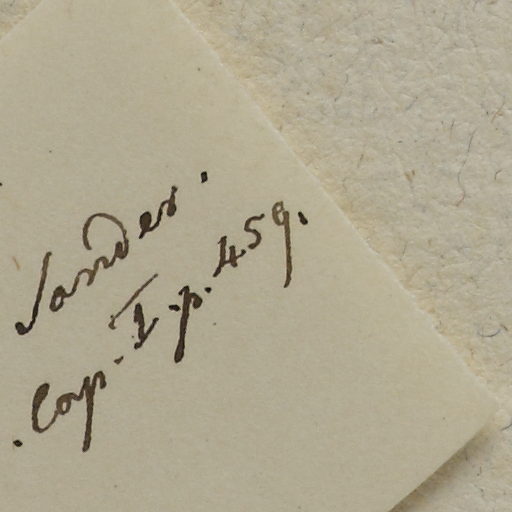 Sander.
. Cap. I. p. 459.